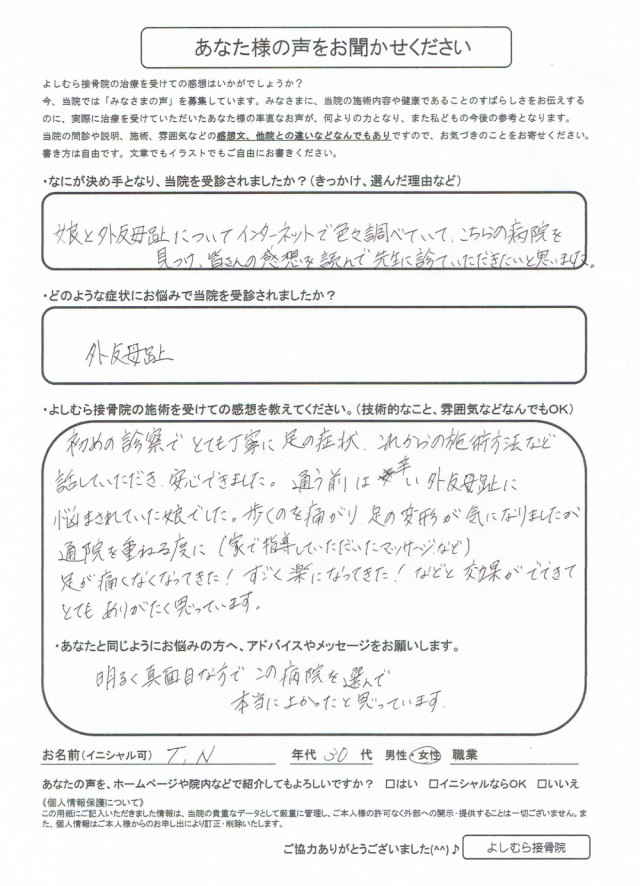 あなた様の声をお聞かせください
よしむら接骨院の治療を受けての感想はいかがでしょうか？
今、当院では「みなさまの声」を募集しています。みなさまに、当院の施術内容や健康であることのすばらしさをお伝えする
のに、実際に治療を受けていただいたあなた様の率直なお声が、何よりの力となり、また私どもの今後の参考となります。
当院の問診や説明、施術、雰囲気などの感想文、他院との違いなどなんでもありですので、お気づきのことをお寄せください。
書き方は自由です。文章でもイラストでもご自由にお書きください。
・なにが決め手となり、当院を受診されましたか？（きっかけ、選んだ理由など）
娘と外反母趾についてインターネットで色々調べていて、こちらの病院を
見つけ、皆さんの感想を読んで先生に診ていただきたいと思いました。
・どのような症状にお悩みで当院を受診されましたか？
外反母趾
・よしむら接骨院の施術を受けての感想を教えてください。（技術的なこと、雰囲気などなんでもOK）
初めの診察でとても丁寧に足の症状、これからの施術方法など
話していただき、安心できました。通う前は い外反母趾に
悩まされていた娘でした。歩くのを痛がり、足の変形が気になりましたが
通院を重ねる度に（家で指導していただいたマッサージなど）
足が痛くなくなってきた！すごく楽になってきた！などと効果がでてきて
とてもありがたく思っています。
・あなたと同じようにお悩みの方へ、アドバイスやメッセージをお願いします。
明るく真面目な方でこの病院を選んで
本当によかったと思っています。
お名前（イニシャル可） T.N 年代 30 代 男性・女性 職業
あなたの声を、ホームページや院内などで紹介してもよろしいですか？ □はい □イニシャルならOK □いいえ
《個人情報保護について》
この用紙にご記入いただきました情報は、当院の貴重なデータとして厳重に管理し、ご本人様の許可なく外部への開示・提供することは一切ございません。ま
た、個人情報はご本人様からのお申し出により訂正・削除いたします。
ご協力ありがとうございました(^^)♪ よしむら接骨院